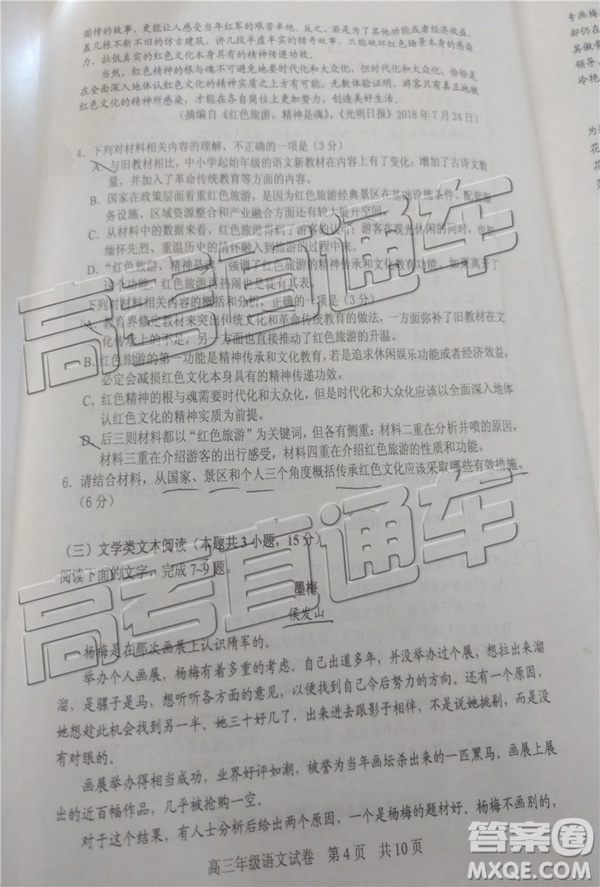 煽情的故事,更能让人感受当年红军的艰苦卓绝。反之,若是其他功能或者经济效益,
盖几栋不新不旧的仿古建筑,讲几段半虚半实的猎奇故事,只能破坏红色场景本身的感染
力,拉低真实的红色文化本身具有的精神传递功效。
当然,红色精神的根与魂不可避免地要时代化和大众化,但时代化和大众化,恰恰是
在全面深入地认红色文化的精神实质之上方有可能。无数体验证明,游客只有真正地被
红色文化的精神所感染,才能在各自岗位上更加努力,创造美好生活。
(摘编自《红色旅游,精神是魂》,《光明日报》2018年7月24日)
专画梅
却仍在
其傲骨
领导、
冷艳
我
花
花
4. 下列对材料相关内容的理解,不正确的一项是(3分)
A. 与旧教材相比,中小学起始年级的语文新教材在内容上有了变化:增加了古诗文数
量,并加入了革命传统教育等方面的内容。
B. 国家在政策层面看重红色旅游,是因为红色旅游经典景区在基础设施条件、配套服
务设施、区域资源整合和产业融合等方面还有较大提升空间。
C. 从材料中的数据来看,红色旅游得到了游客的认可:游客在享用休闲的同时,也能
缅怀先烈、重温历史的情怀融入到旅游的
D. “红色旅游,精神是魂”强调了红色旅游的精神传承和文化教育功能,如果离开了
这个功能,红色旅游再热闹也是徒有其表。
下列对材料相关内容的概括和分析,正确的一项是(3分)
A. 教育界修定教材来突出传统文化和革命传统教育的做法,一方面弥补了旧教材在文
化传承上的不
B. 红色旅游的第一功能是精神传承和文化教育,若是追求休闲娱乐功能或者经济效益,
必定会减损红色文化本身具有的精神传递功效。
C. 红色精神的根与魂需要时代化和大众化,但是时代化和大众化应该以全面深入地体
认红色文化的精神实质为前提。
D. 后三则材料都以“红色旅游”为关键词,但各有侧重:材料二重在分析井喷的原因,
材料三重在介绍游客的出行感受,材料四重在介绍红色旅游的性质和功能。
6. 请结合材料,从国家、景区和个人三个角度概括传承红色文化应该采取哪些有效措施。
(6分)
(三)文学类文本阅读(本题共3小题,15分)
阅读下面的文字,完成7-9题。
墨梅
侯发山
杨梅是在那次画展上认识隋军的。
举办个人画展,杨梅有着多重的考虑。自己这多年,并没举办过个展,想拉出来溜
溜,是骡子是马,想听听各方面的意见,以便找到自己今后努力的方向。还有一个原因,
她想趁此机会找到另一半。她三十好几了,出来进去跟影子相伴,不是说她挑剔,而是没
有对眼的。
画展举办得相当成功,业界好评如潮,被誉为当年画坛杀出来的一匹黑马。画展上展
出的近百幅作品,几乎被抢购一空。
对于这个结果,有人士给出两个原因,一个是杨梅的题材好。杨梅不画别的,
高三年级语文试卷 第4页 共10页
高考直通车
高考直通车
答案圈
MXQE.COM